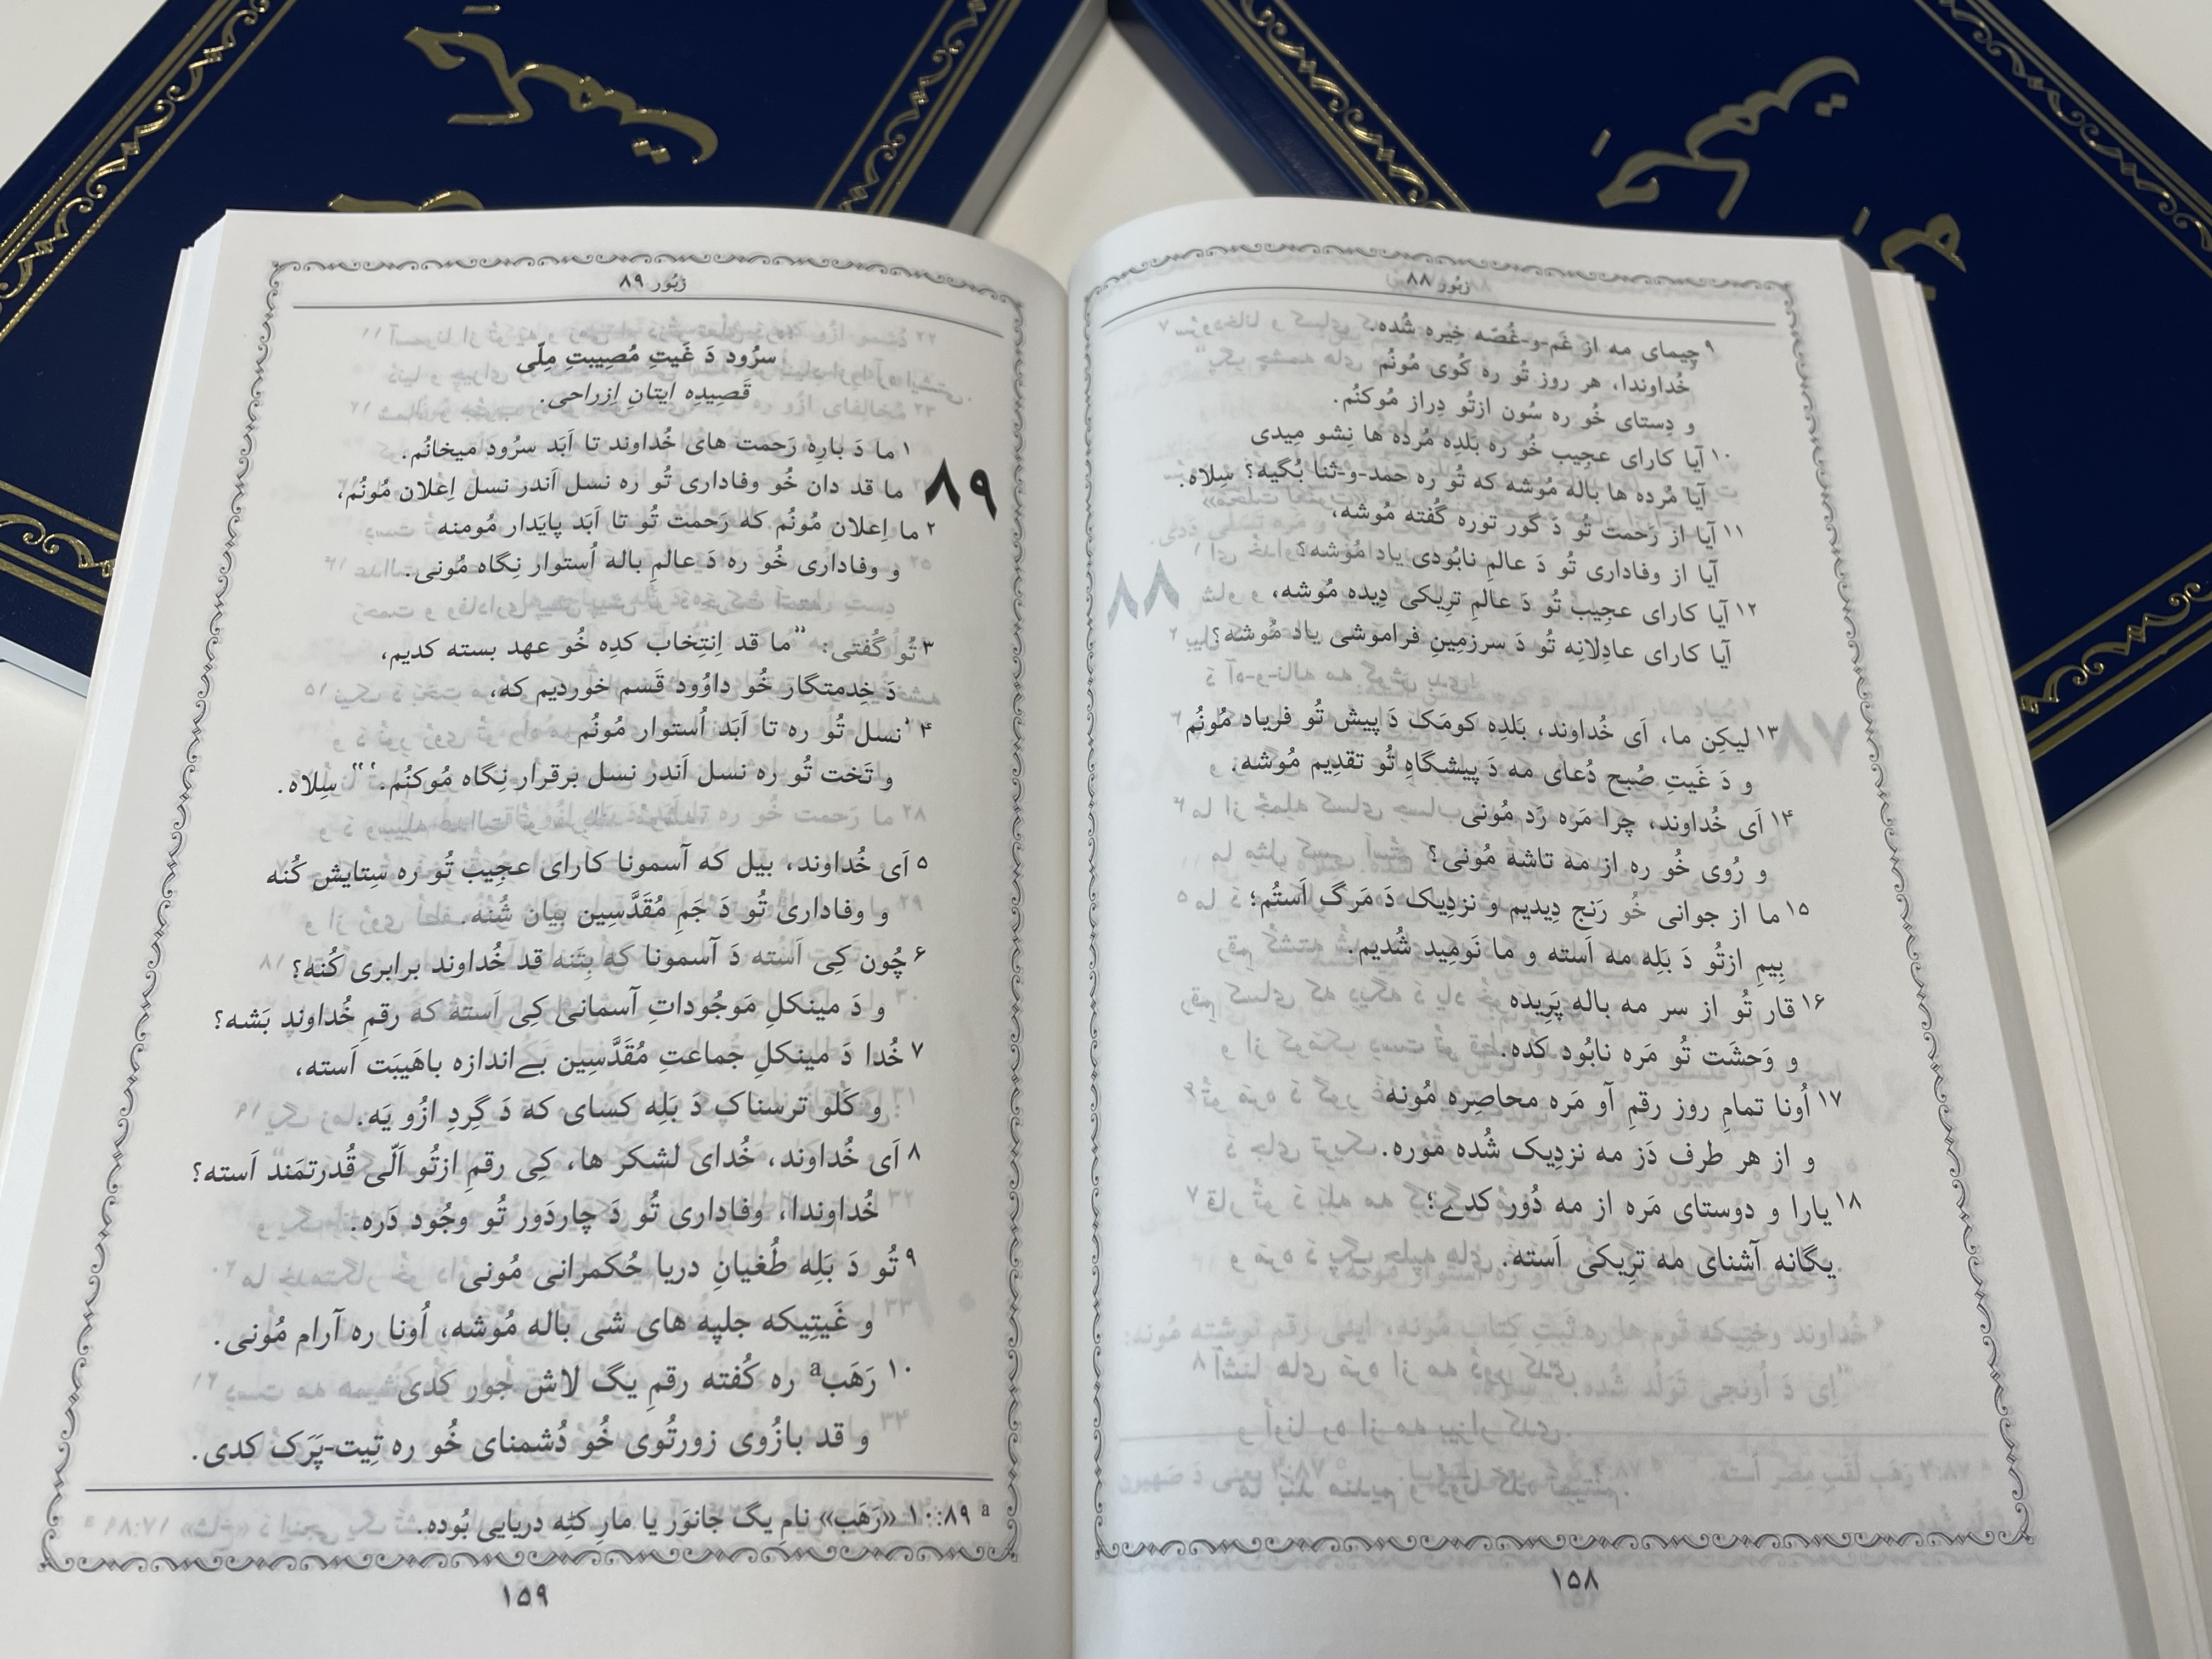 حکمت
حکمت
زبُور ۸۸
۹ چیمای مه از غَم-و-غُصّه خِیره شُده.
خُداوندا، هر روز تُو ره کُوی مُونُم
و دِستای خُو ره سُون ازتُو دِراز مُوکنُم.
۱۰ آیا کارای عجِیب خُو ره بَلدِه مُرده ها نِشو مِیدی
آیا مُرده ها باله مُوشه که تُو ره حمد-و-ثنا بُگیه؟ سِلاه.
۱۱ آیا از رَحمت تُو دَ گور توره گُفته مُوشه،
آیا از وفاداری تُو دَ عالمِ نابُودی یاد مُوشه؟
۱۲ آیا کارای عجِیب تُو دَ عالمِ ترِیکی دِیده مُوشه،
آیا کارای عادِلانِه تُو دَ سرزمِینِ فراموشی یاد مُوشه؟
۱۳ لیکِن ما، اَی خُداوند، بَلدِه کومَک دَ پیش تُو فریاد مُونُم
و دَ غَیتِ صُبح دُعای مه دَ پیشگاهِ تُو تقدِیم مُوشه.
۱۴ اَی خُداوند، چرا مَره رَد مُونی
و رُوی خُو ره از مه تاشه مُونی؟
۱۵ ما از جوانی خُو رَنج دِیدیم و نزدِیک دَ مَرگ اَستُم؛
بِیمِ ازتُو دَ بَلِه مه اَسته و ما نَومِید شُدیم.
۱۶ قار تُو از سر مه باله پَرِیده
و وَحشَت تُو مَره نابُود کده.
۱۷ اُونا تمامِ روز رقمِ آو مَره محاصِره مُونه
و از هر طرف دَز مه نزدِیک شُده موره.
۱۸ یارا و دوستای مَره از مه دُور کدے؛
یگانه آشنای مه ترِیکی اَسته.
۱۵۸
زبُور ۸۹
سرُود دَ غَیتِ مُصِیبتِ مِلّی
قَصِیدِه ایتانِ اِزراحی.
۸۹
۱ ما دَ بارِه رَحمت های خُداوند تا اَبَد سرُود میخانُم.
ما قد دان خُو وفاداری تُو ره نسل اَندر نسل اِعلان مُونُم،
۲ ما اِعلان مُونُم که رَحمت تُو تا اَبَد پایَدار مُومنه
و وفاداری خُو ره دَ عالمِ باله اُستوار نِگاه مُونی.
۳ تُو گُفتی: ”ما قد اِنتِخاب کدِه خُو عهد بسته کدیم،
دَ خِدمتگار خُو داوُود قَسم خوردیم که،
۴ ’نسل تُو ره تا اَبَد اُستوار مُونُم
و تَخت تُو ره نسل اَندر نسل برقرار نِگاه مُوکنُم.‘“ سِلاه.
۵ اَی خُداوند، بیل که آسمونا کارای عجِیبِ تُو ره سِتایش کُنه
و وفاداری تُو دَ جَمِ مُقَدَّسِین بیان شُنه.
۶ چُون کِی اَسته دَ آسمونا که بِتَنه قد خُداوند برابری کُنه؟
و دَ مینکلِ مَوجُوداتِ آسمانی کِی اَسته که رقمِ خُداوند بَشه؟
۷ خُدا دَ مینکلِ جماعتِ مُقَدَّسِین بےاندازه باهَیبَت اَسته،
و کَلو ترسناک دَ بَلِه کسای که دَ گِردِ ازُو یَه.
۸ اَی خُداوند، خُدای لشکر ها، کِی رقمِ ازتُو اَلّی قُدرتمَند اَسته؟
خُداوندا، وفاداری تُو دَ چاردَور تُو وجُود دَره.
۹ تُو دَ بَلِه طُغیانِ دریا حُکمرانی مُونی
و غَیتِیکه جلپه های شی باله مُوشه، اُونا ره آرام مُونی.
۱۰ رَهَب a ره کُفته رقمِ یگ لاش جور کدی
و قد بازُوی زورتُوی خُو دُشمنای خُو ره تِیت-پَرَک کدی.
a ۸۹:‏۱۰ «رَهَب» نامِ یگ جانوَر یا مارِ کٹِه دریایی بُوده.
۱۵۹